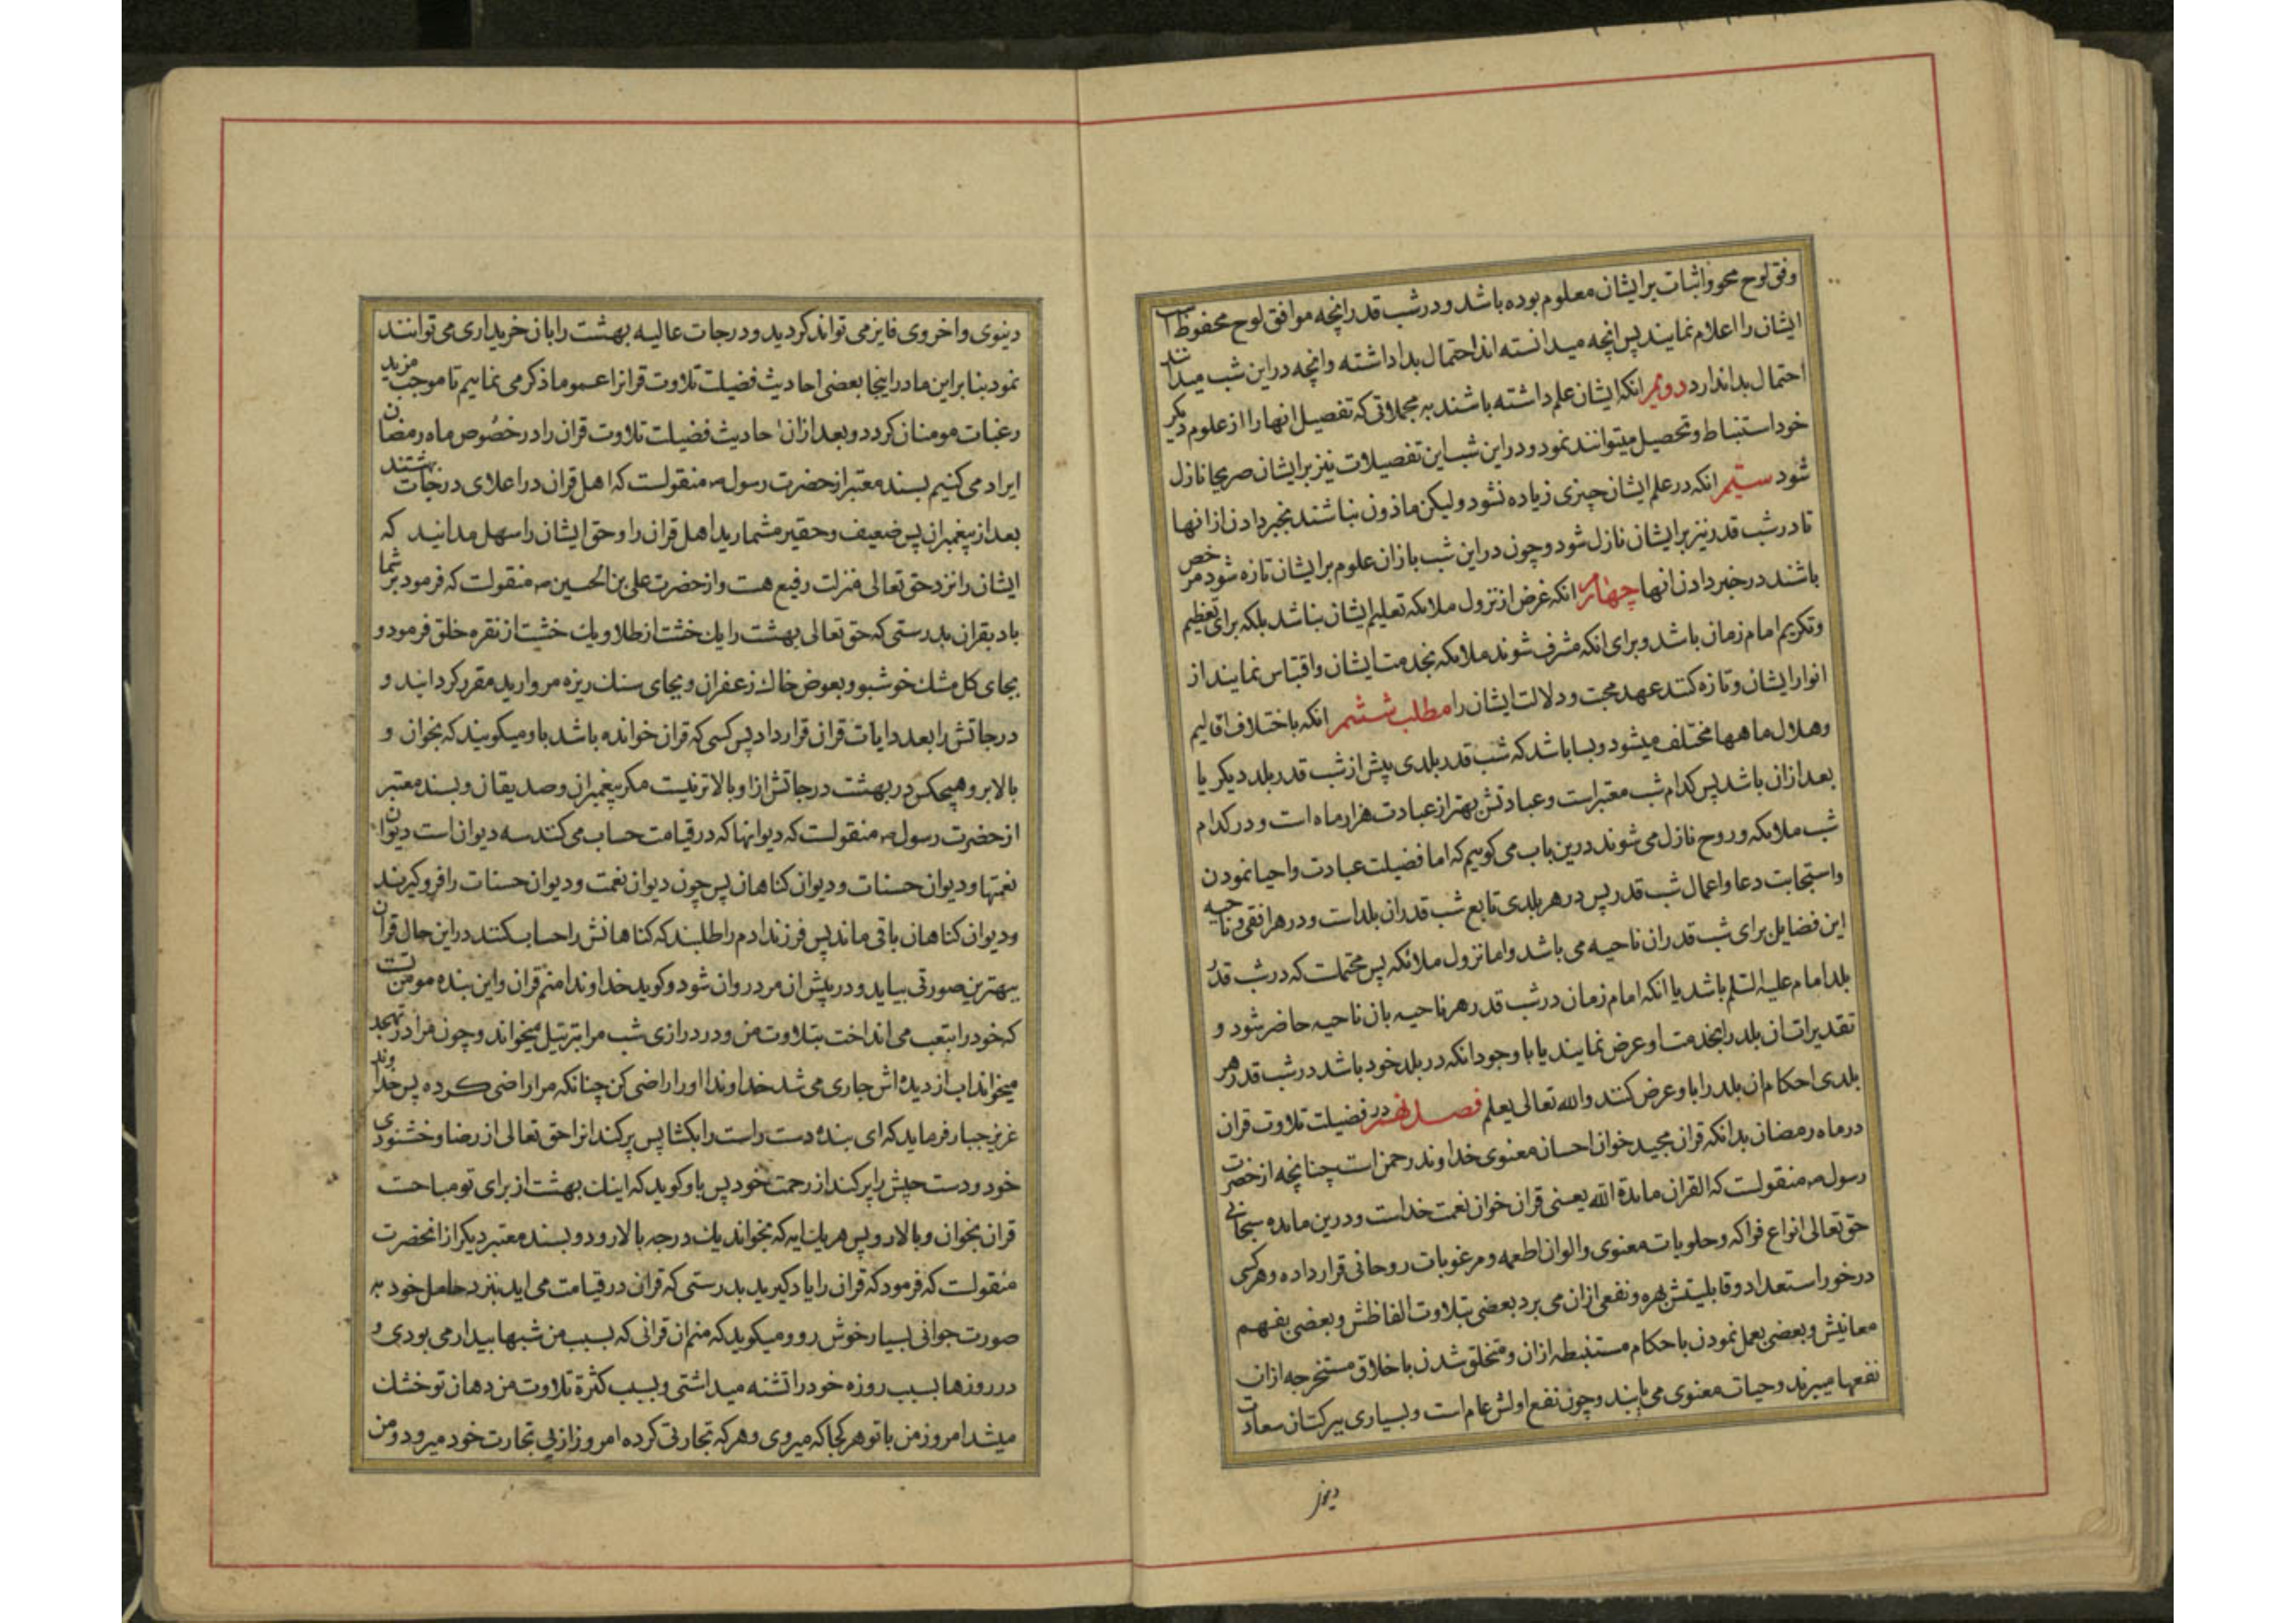 وفق لوح محو و اثبات بر ایشان معلوم بوده باشد و در شب قدر انچه موافق لوح محفوظ است
ایشان را اعلام نمایند پس انچه میدانسته اند احتمال بدا داشته و انچه در این شب میدانند
احتمال بدا ندارد دویم انکه ایشان علم داشته باشند به مجملاتی که تفصیل انها را از علوم دیکر
خود استنباط و تحصیل میتوانند نمود و در این شب این تفصیلات نیز بر ایشان صریحا نازل
شود سیّم انکه در علم ایشان چیزی زیاده نشود ولیکن ماذون نباشند بخبر دادن از انها
تا در شب قدر نیز بر ایشان نازل شود و چون در این شب باز ان علوم بر ایشان تازه شود مرخص
باشند در خبر دادن انها چهارم انکه غرض از نزول ملائکه تعلیم ایشان نباشد بلکه برای تعظیم
و تکریم امام زمان باشد و برای انکه مشرف شوند ملائکه بخدمت ایشان و اقتباس نمایند از
انوار ایشان و تازه کنند عهد محبت و دلالت ایشان را مطلب ششم انکه باختلاف اقالیم
و هلال ماهها مختلف میشود و بسا باشد که شب قدر بلدی پیش از شب قدر بلد دیکر یا
بعد ازان باشد پس کدام شب معتبر است و عبادتش بهتر از عبادت هزار ماه است و در کدام
شب ملائکه و روح نازل می شوند درین باب می کوییم که اما فضیلت عبادت و احیا نمودن
و استجابت دعا و اعمال شب قدر پس در هر بلدی تابع شب قدر ان بلد است و در هر افقی و ناحیه
این فضایل برای شب قدر ان ناحیه می باشد و اما نزول ملائکه پس محتملست که در شب قدر
بلد امام علیه السّلم باشد یا انکه امام زمان در شب قدر هر ناحیه بان ناحیه حاضر شود و
تقدیرات ان بلد را بخدمت او عرض نمایند یا با وجود انکه در بلد خود باشد در شب قدر هر
بلدی احکام ان بلد را باو عرض کنند والله تعالی یعلم فصل نهم در فضیلت تلاوت قران
در ماه رمضان بدانکه قران مجید خوان احسان معنوی خداوند رحمن است چنانچه از حضرت
رسول ص منقولست که القران مائدة الله یعنی قران خوان نعمت خداست و درین مائده سبحانی
حق تعالی انواع فواکه و حلویات معنوی و الوان اطعمه و مرغوبات روحانی قرار داده و هر کسی
در خور استعداد و قابلیتش بهره و نفعی ازان می برد بعضی بتلاوت الفاظش و بعضی بفهم
معانیش و بعضی بعمل نمودن باحکام مستنبطه ازان و متخلق شدن باخلاق مستخرجه ازان
نفعها میبرند و حیات معنوی می یابند و چون نفع اولش عام است و بسیاری ببرکت ان سعادت
دینو
دینوی و اخروی فایز می تواند کردید و درجات عالیه بهشت را بان خریداری می توانند
نمود بنا براین ما در اینجا بعضی احادیث فضیلت تلاوت قرانرا عموما ذکر می نماییم تا موجب مزید
رغبات مومنان کردد و بعد ازان احادیث فضیلت تلاوت قران را در خصوص ماه رمضان
ایراد می کنیم بسند معتبر از حضرت رسول ص منقولست که اهل قران در اعلای درجات بهشتند
بعد از پیغمبران پس ضعیف و حقیر مشمارید اهل قران را و حق ایشان را سهل مدانید که
ایشان را نزد حق تعالی منزلت رفیع هست و از حضرت علی بن الحسین ص منقولست که فرمود بر شما
باد بقران بدرستی که حق تعالی بهشت را یک خشت از طلا و یک خشت از نقره خلق فرمود و
بجای کل مشک خوشبو و بعوض خاک زعفران و بجای سنک ریزه مروارید مقرر کردانید و
درجاتش را بعدد ایات قران قرار داد پس کسی که قران خوانده باشد باو میکویند که بخوان و
بالا برو و هیچکس در بهشت درجاتش از او بالاتر نیست مکر پیغمبران و صدیقان و بسند معتبر
از حضرت رسول ص منقولست که دیوانها که در قیامت حساب می کنند سه دیوان است دیوان
نعمتها و دیوان حسنات و دیوان کناهان پس چون دیوان نعمت و دیوان حسنات را فرو کیرند
و دیوان کناهان باقی ماند پس فرزند ادم را طلبند که کناهانش را حساب کنند در این حال قران
ببهترین صورتی بیاید و در پیش ان مرد روان شود و کوید خداوندا منم قران و این بنده مومن تست
که خود را بتعب می انداخت بتلاوت من و در درازی شب مرا بترتیل میخواند و چون مرا در تهجد
میخواند اب از دیده اش جاری می شد خداوندا او را راضی کن چنانکه مرا راضی کرده پس خداوند
عزیز جبار فرماید که ای بنده دست راست را بکشا پس پر کند انرا حق تعالی از رضا و خشنودی
خود و دست چپش را پر کند از رحمت خود پس باو کوید که اینک بهشت از برای تو مباحست
قران بخوان و بالا رو پس هر یک ایه که بخواند یک درجه بالا رود و بسند معتبر دیکر از انحضرت
منقولست که فرمود که قران را یاد کیرید بدرستی که قران در قیامت می اید بنزد حامل خود به
صورت جوانی بسیار خوش رو و میکوید که منم ان قرانی که بسبب من شبها بیدار می بودی و
در روزها بسبب روزه خود را تشنه میداشتی و بسبب کثرة تلاوت من دهان تو خشک
میشد امروز من با تو هر کجا که میروی و هر که تجارتی کرده امروز از پی تجارت خود میرود و من